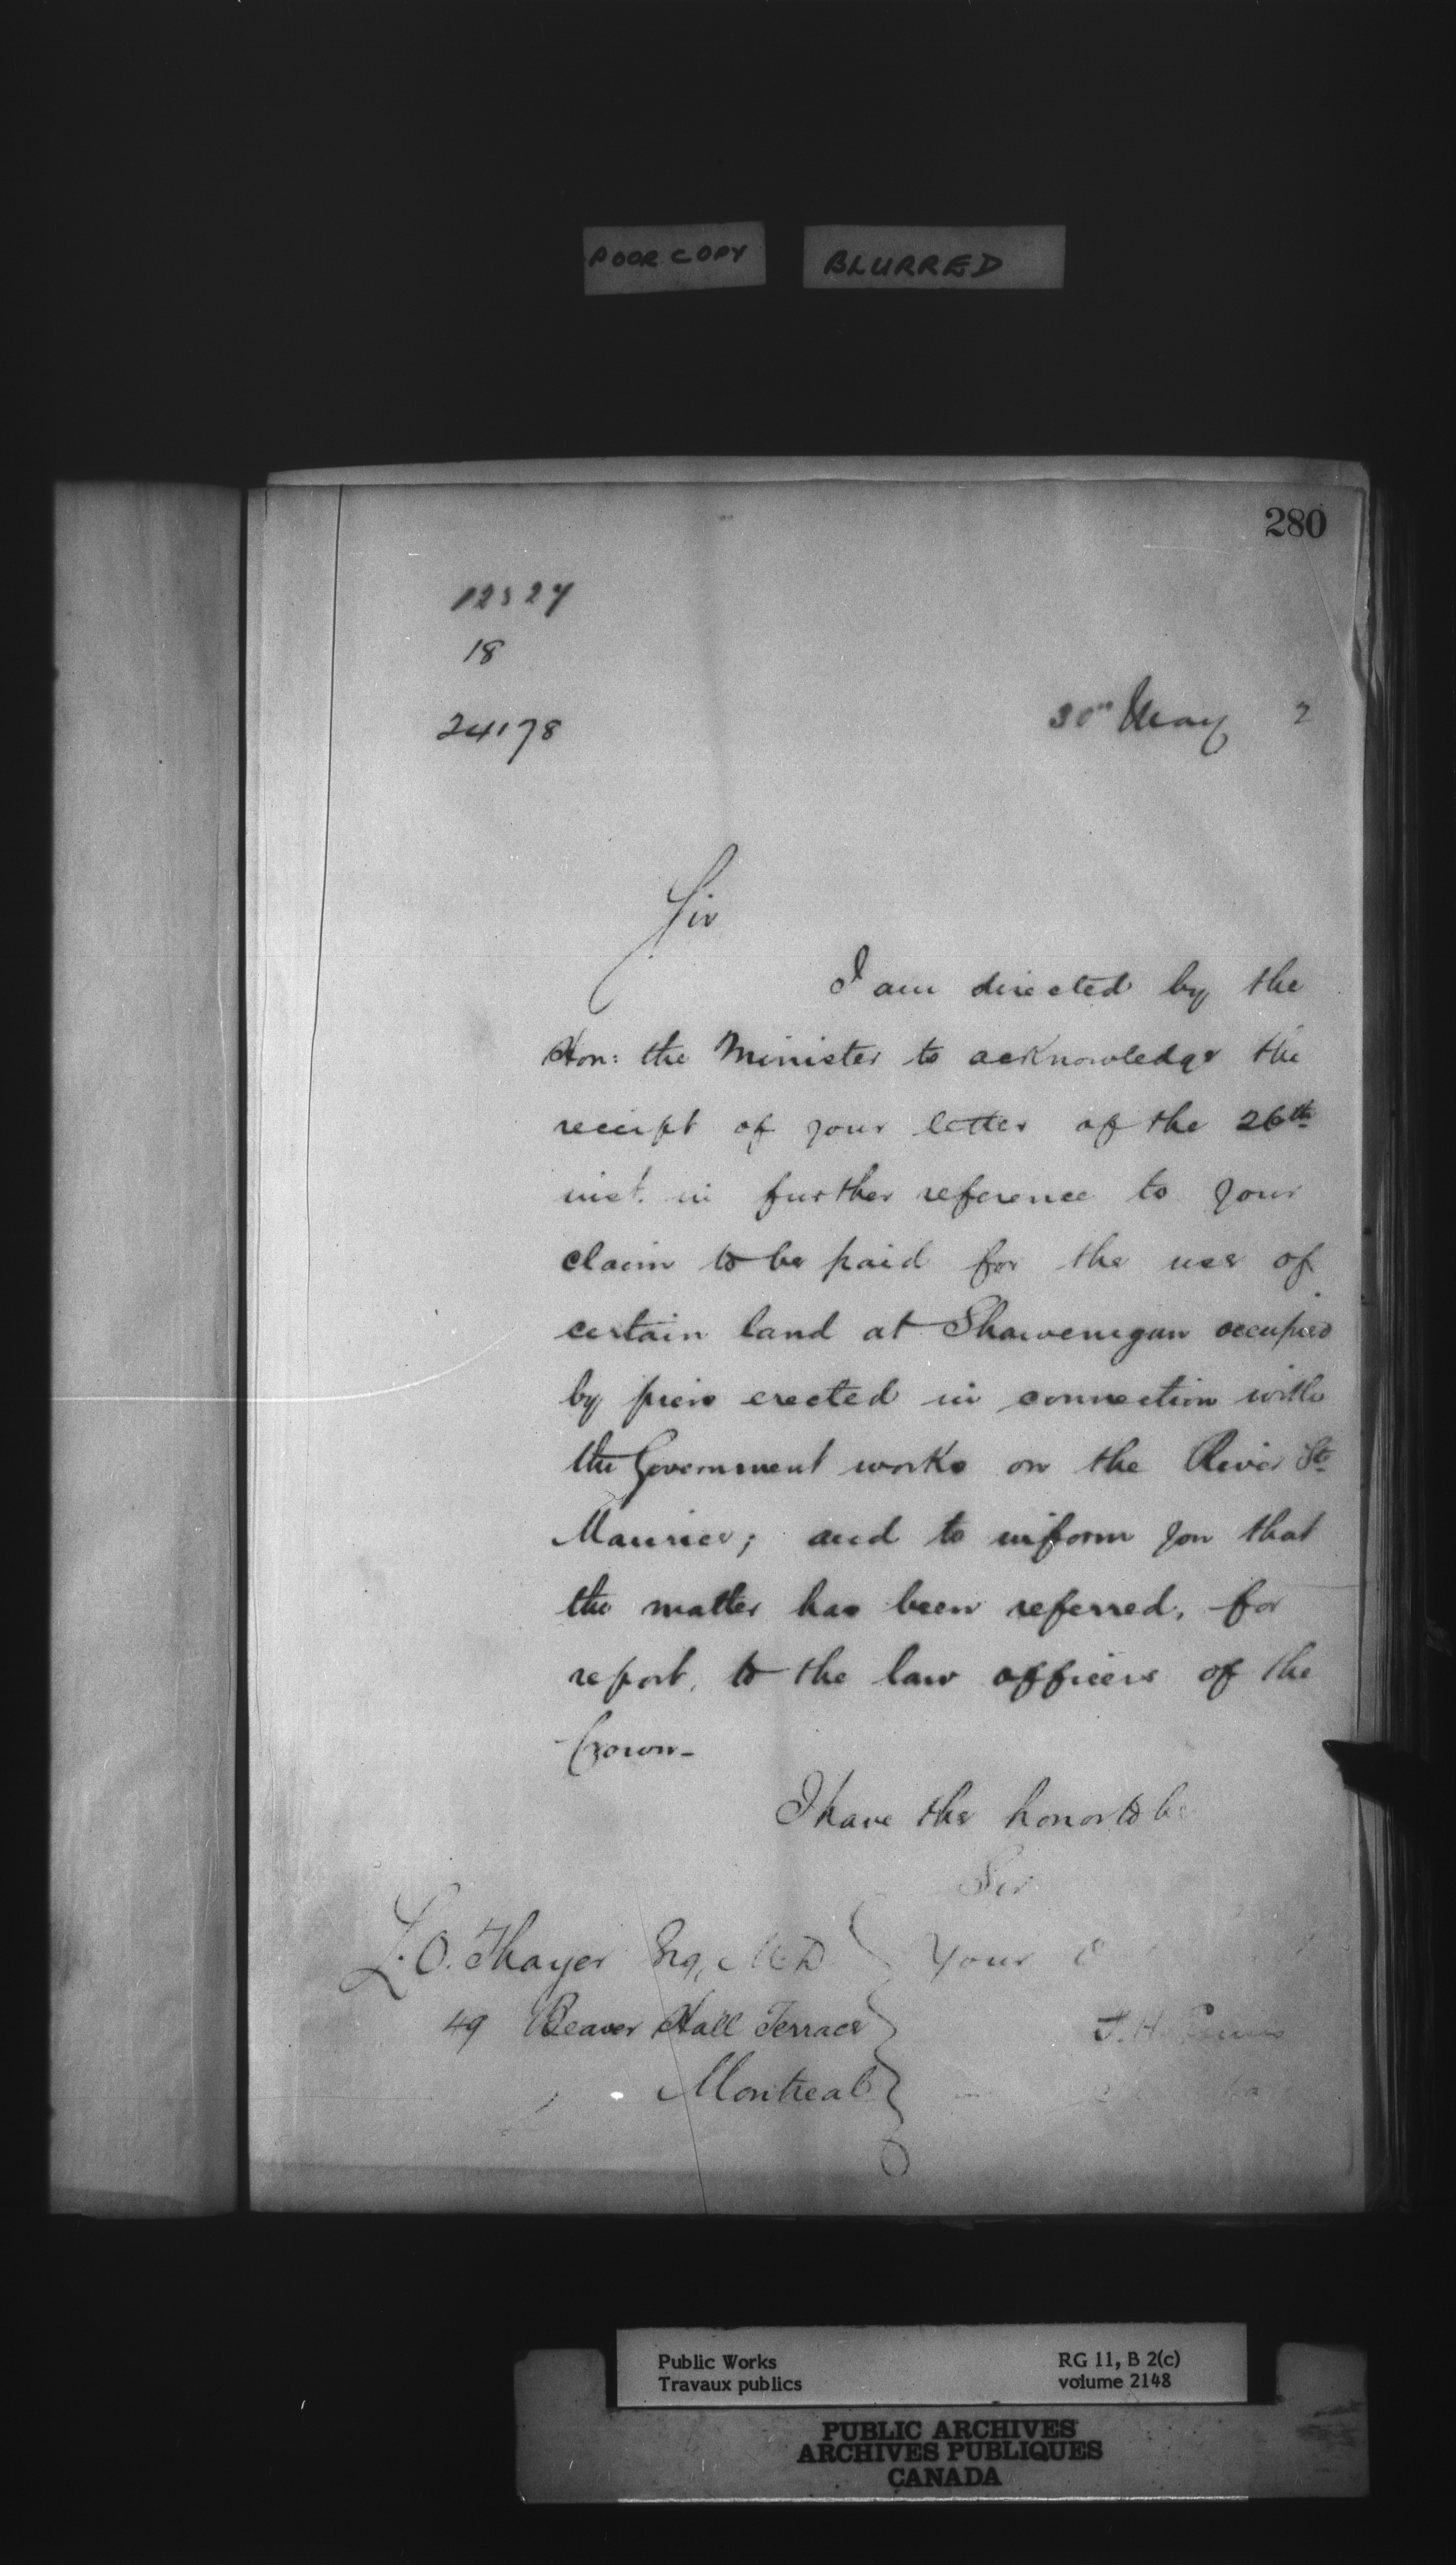 POOR COPY BLURRED
280
18
24178
30th May 2
Sir
I am directed by the
Hon: the Minister to acknowledge the
receipt of your letter of the 26th
inst. in further reference to your
claim to be paid for the use of
certain land at Shawenegan occupied
by piers erected in connection with
the Government works on the River St
Maurice; and to inform you that
the matter has been referred, for
report, to the law officers of the
Crown-
I have the honor to be
Sir
L. O. Thayer Esq, M.D Your
49 Beaver Hall Terrace
Montreal
Public Works RG 11, B 2(c)
Travaux publics volume 2148
PUBLIC ARCHIVES
ARCHIVES PUBLIQUES
CANADA